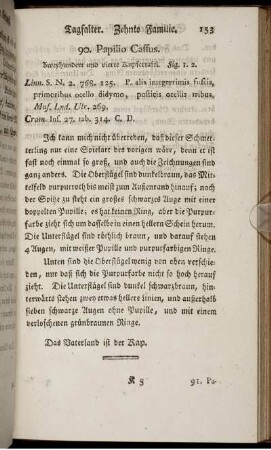 Tagfalter. Zehnte Familie. 153
90. Papilio Cassus.
Zweyhundert und vierte Kupfertafel. Fig. 1. 2.
Linn. S. N. 2. 768. 125. P. alis integerrimis fuscis,
primoribus ocello didymo, posticis ocellis tribus,
Mus. Lud. Ulr. 269.
Cram. Inf. 27. tab. 314. C. D.
Ich kann mich nicht überreden, daß dieser Schmet-
terling nur eine Spielart des vorigen wäre, denn er ist
fast noch einmal so groß, und auch die Zeichnungen sind
ganz anders. Die Oberflügel sind dunkelbraun, das Mit-
telfeld purpurroth bis meist zum Außenrand hinauf; nach
der Spitze zu steht ein großes schwarzes Auge mit einer
doppelten Pupille; es hat keinen Ring, aber die Purpur-
farbe zieht sich um dasselbe in einen hellern Schein herum.
Die Unterflügel sind röthlich braun, und darauf stehen
4 Augen, mit weißer Pupille und purpurfarbigen Ringe.
Unten sind die Oberflügel wenig von oben verschie-
den, nur daß sich die Purpurfarbe nicht so hoch herauf
zieht. Die Unterflügel sind dunkel schwarzbraun, hin-
terwärts stehen zwey etwas hellere Linien, und außerhalb
sieben schwarze Augen ohne Pupille, und mit einem
verloschenen grünbraunen Ringe.
Das Vaterland ist der Kap.
K 5 91. Pa-